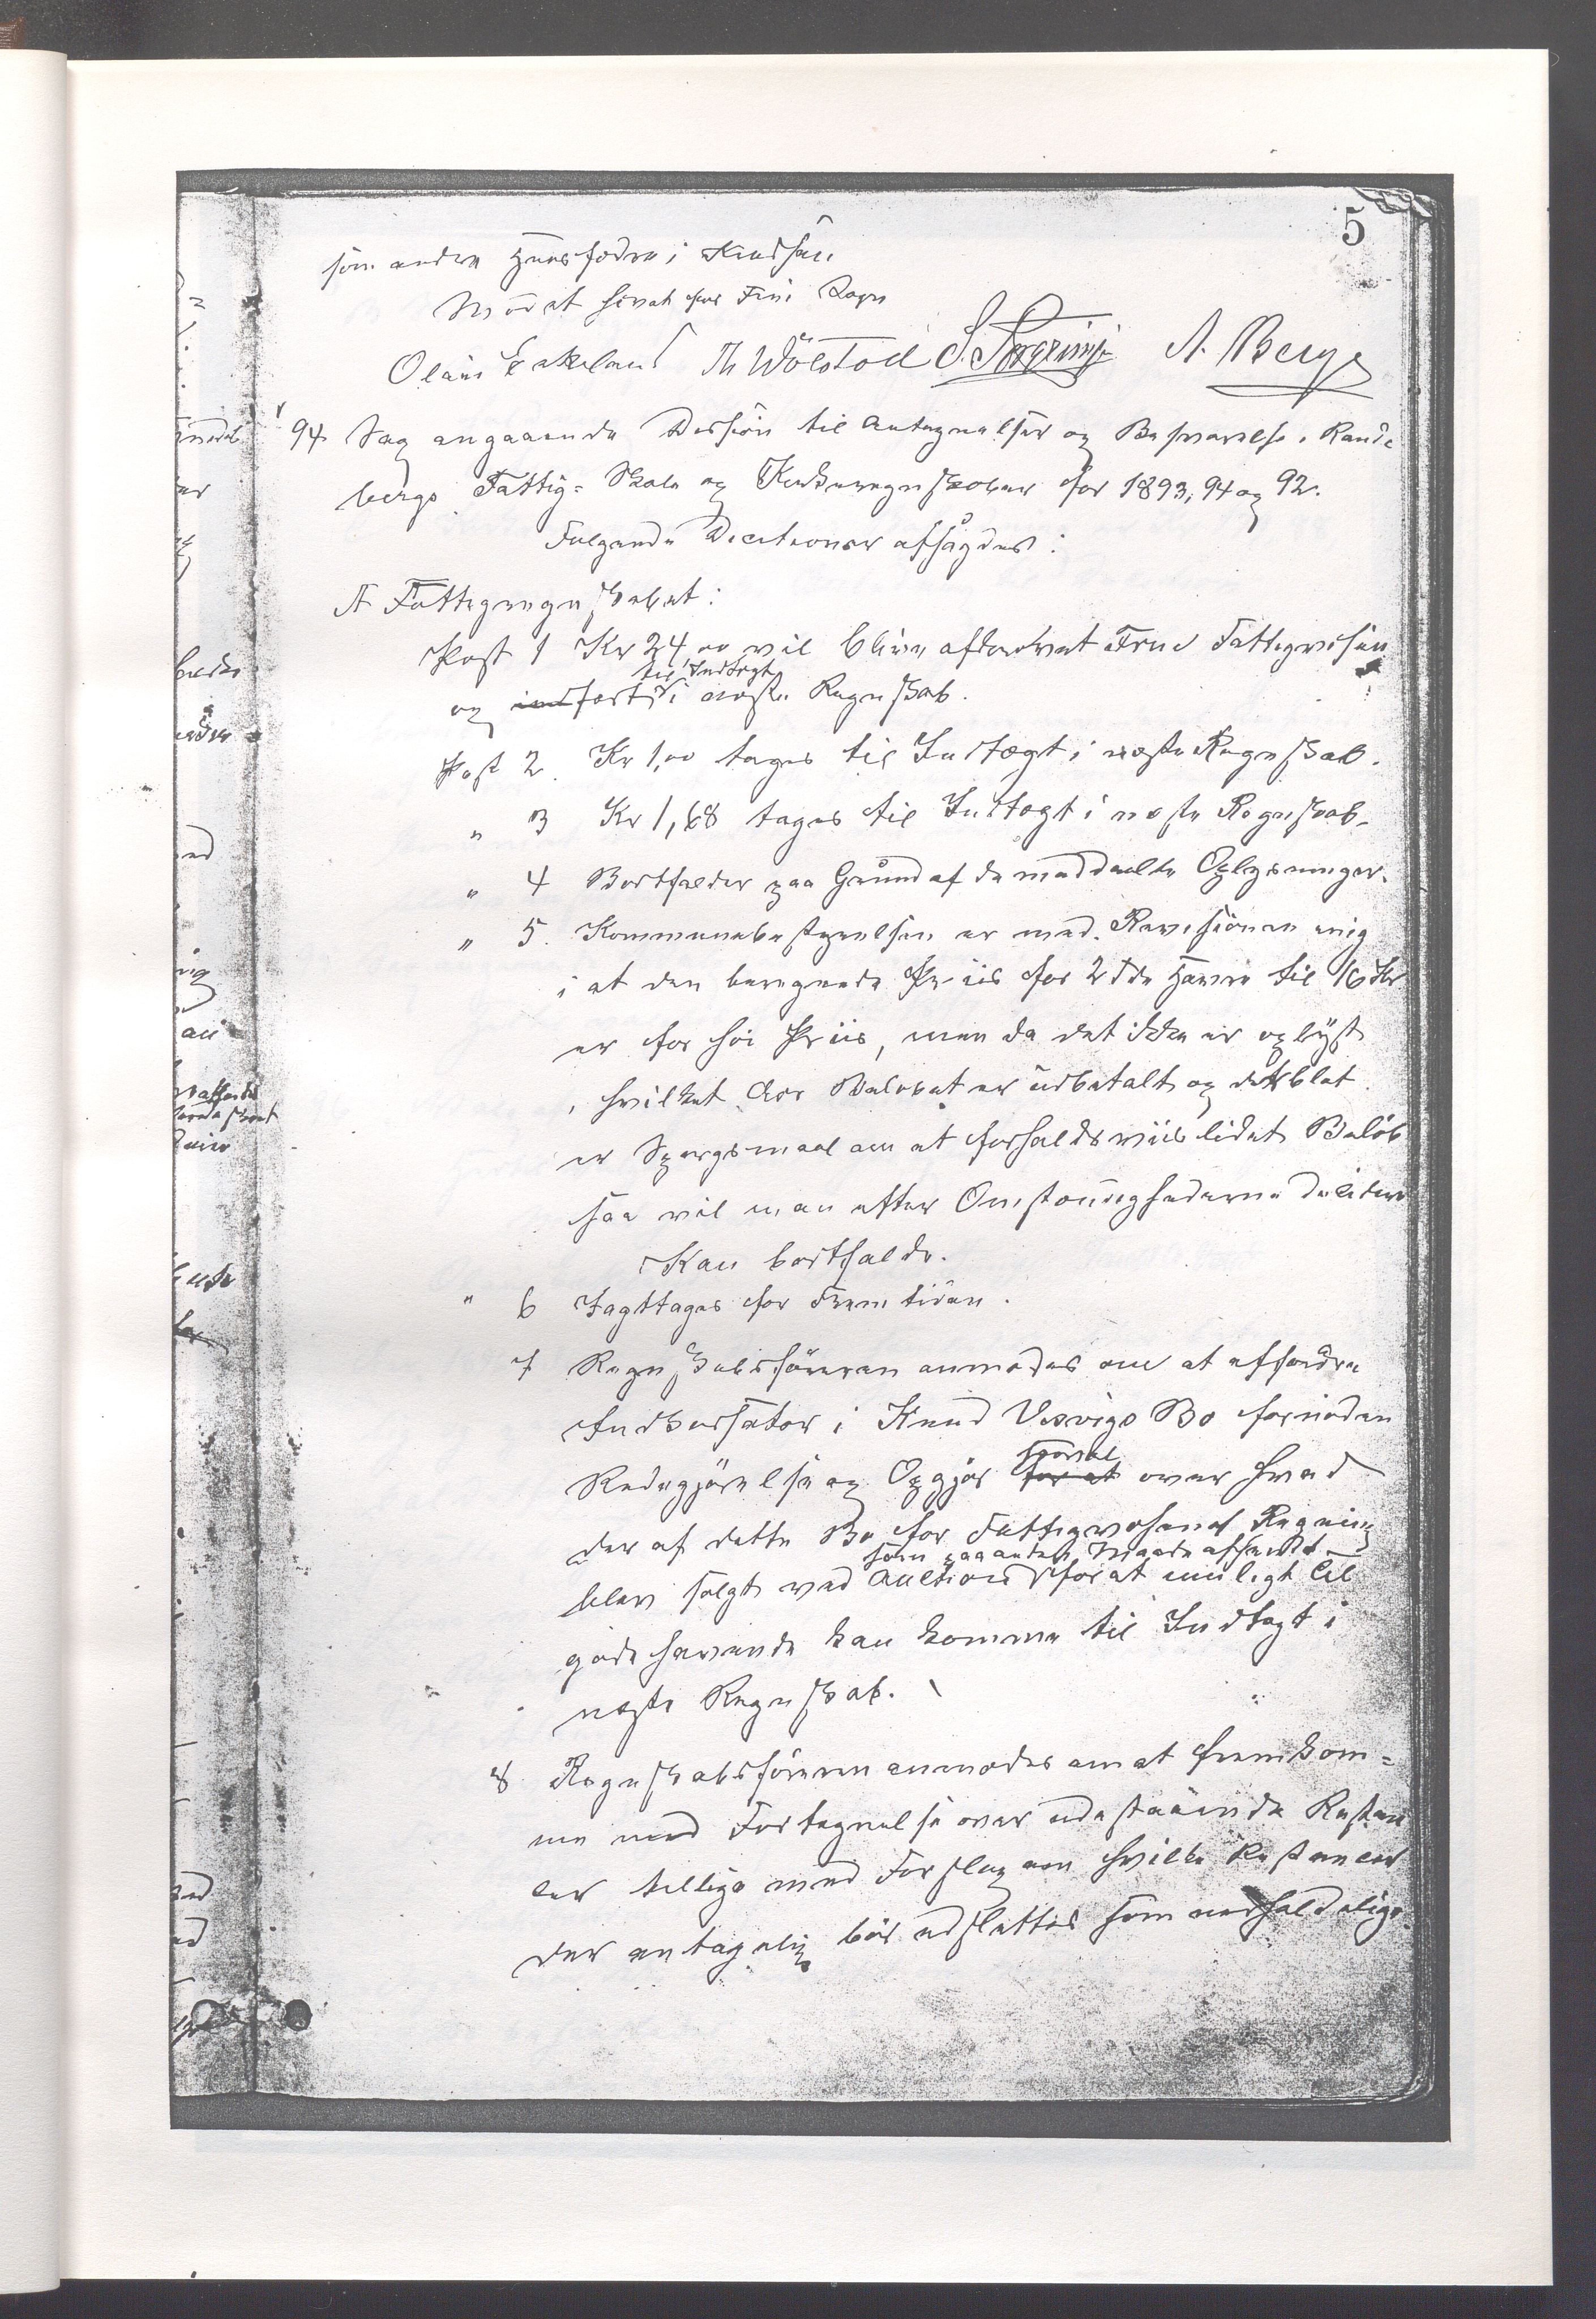 5
som andre Huusfædre i Kredsen
Mødet hævet
Olaus Eskeland Th Wølstad A. Berge
94 Sag angaaende Decision til Antegnelser og Besvarelse i Rande
bergs Fattig- Skole og Kirkeregnskaber for 1893, 94 og 92.
Følgende Decisioner afsagdes:
A Fattigregnskabet:
Post 1 Kr 24,00 vil blive afkrævet Fattigvæsen
til Indtægt
og ført i næste Regnskab.
Post 2. Kr 1,00 tages til Indtægt i næste Regnskab.
" 3 Kr 1,68 tages til Indtægt i næste Regnskab.
" 4 Bortfalder paa Grund af de meddeelte Oplysninger.
" 5. Kommunebestyrelsen er med Revisionen enig
i at den beregnede Priis for 2 Tdr Havre til 16 Kr
er for høi Priis, men da det ikke er oplyst
i hvilket Aar Beløbet er udbetalt og det blot
er Spørgsmaal om et forholdsviis lidet Beløb
saa vil man efter Omstændighederne
kan bortfalde.
" 6 Iagttages for Fremtiden.
7 Regnskabsføreren anmodes om at affordre
Inkassator i Knud Visvigs Bo fornøden
Redegjørelse og Opgjør for at over hvad
der af dette Bo for Fattigvæsenets Regning
som paa anden Maade afhændet
blev solgt ved Auction for at muligt Til
godehavende kan komme til Indtægt i
næste Regnskab.
8 Regnskabsføreren anmodes om at fremkom=
me med Fortegnelse over udestaaende Restan
cer tillige med Forslag om hvilke Restancer
der antagelig bør udslettes som uerholdelige.